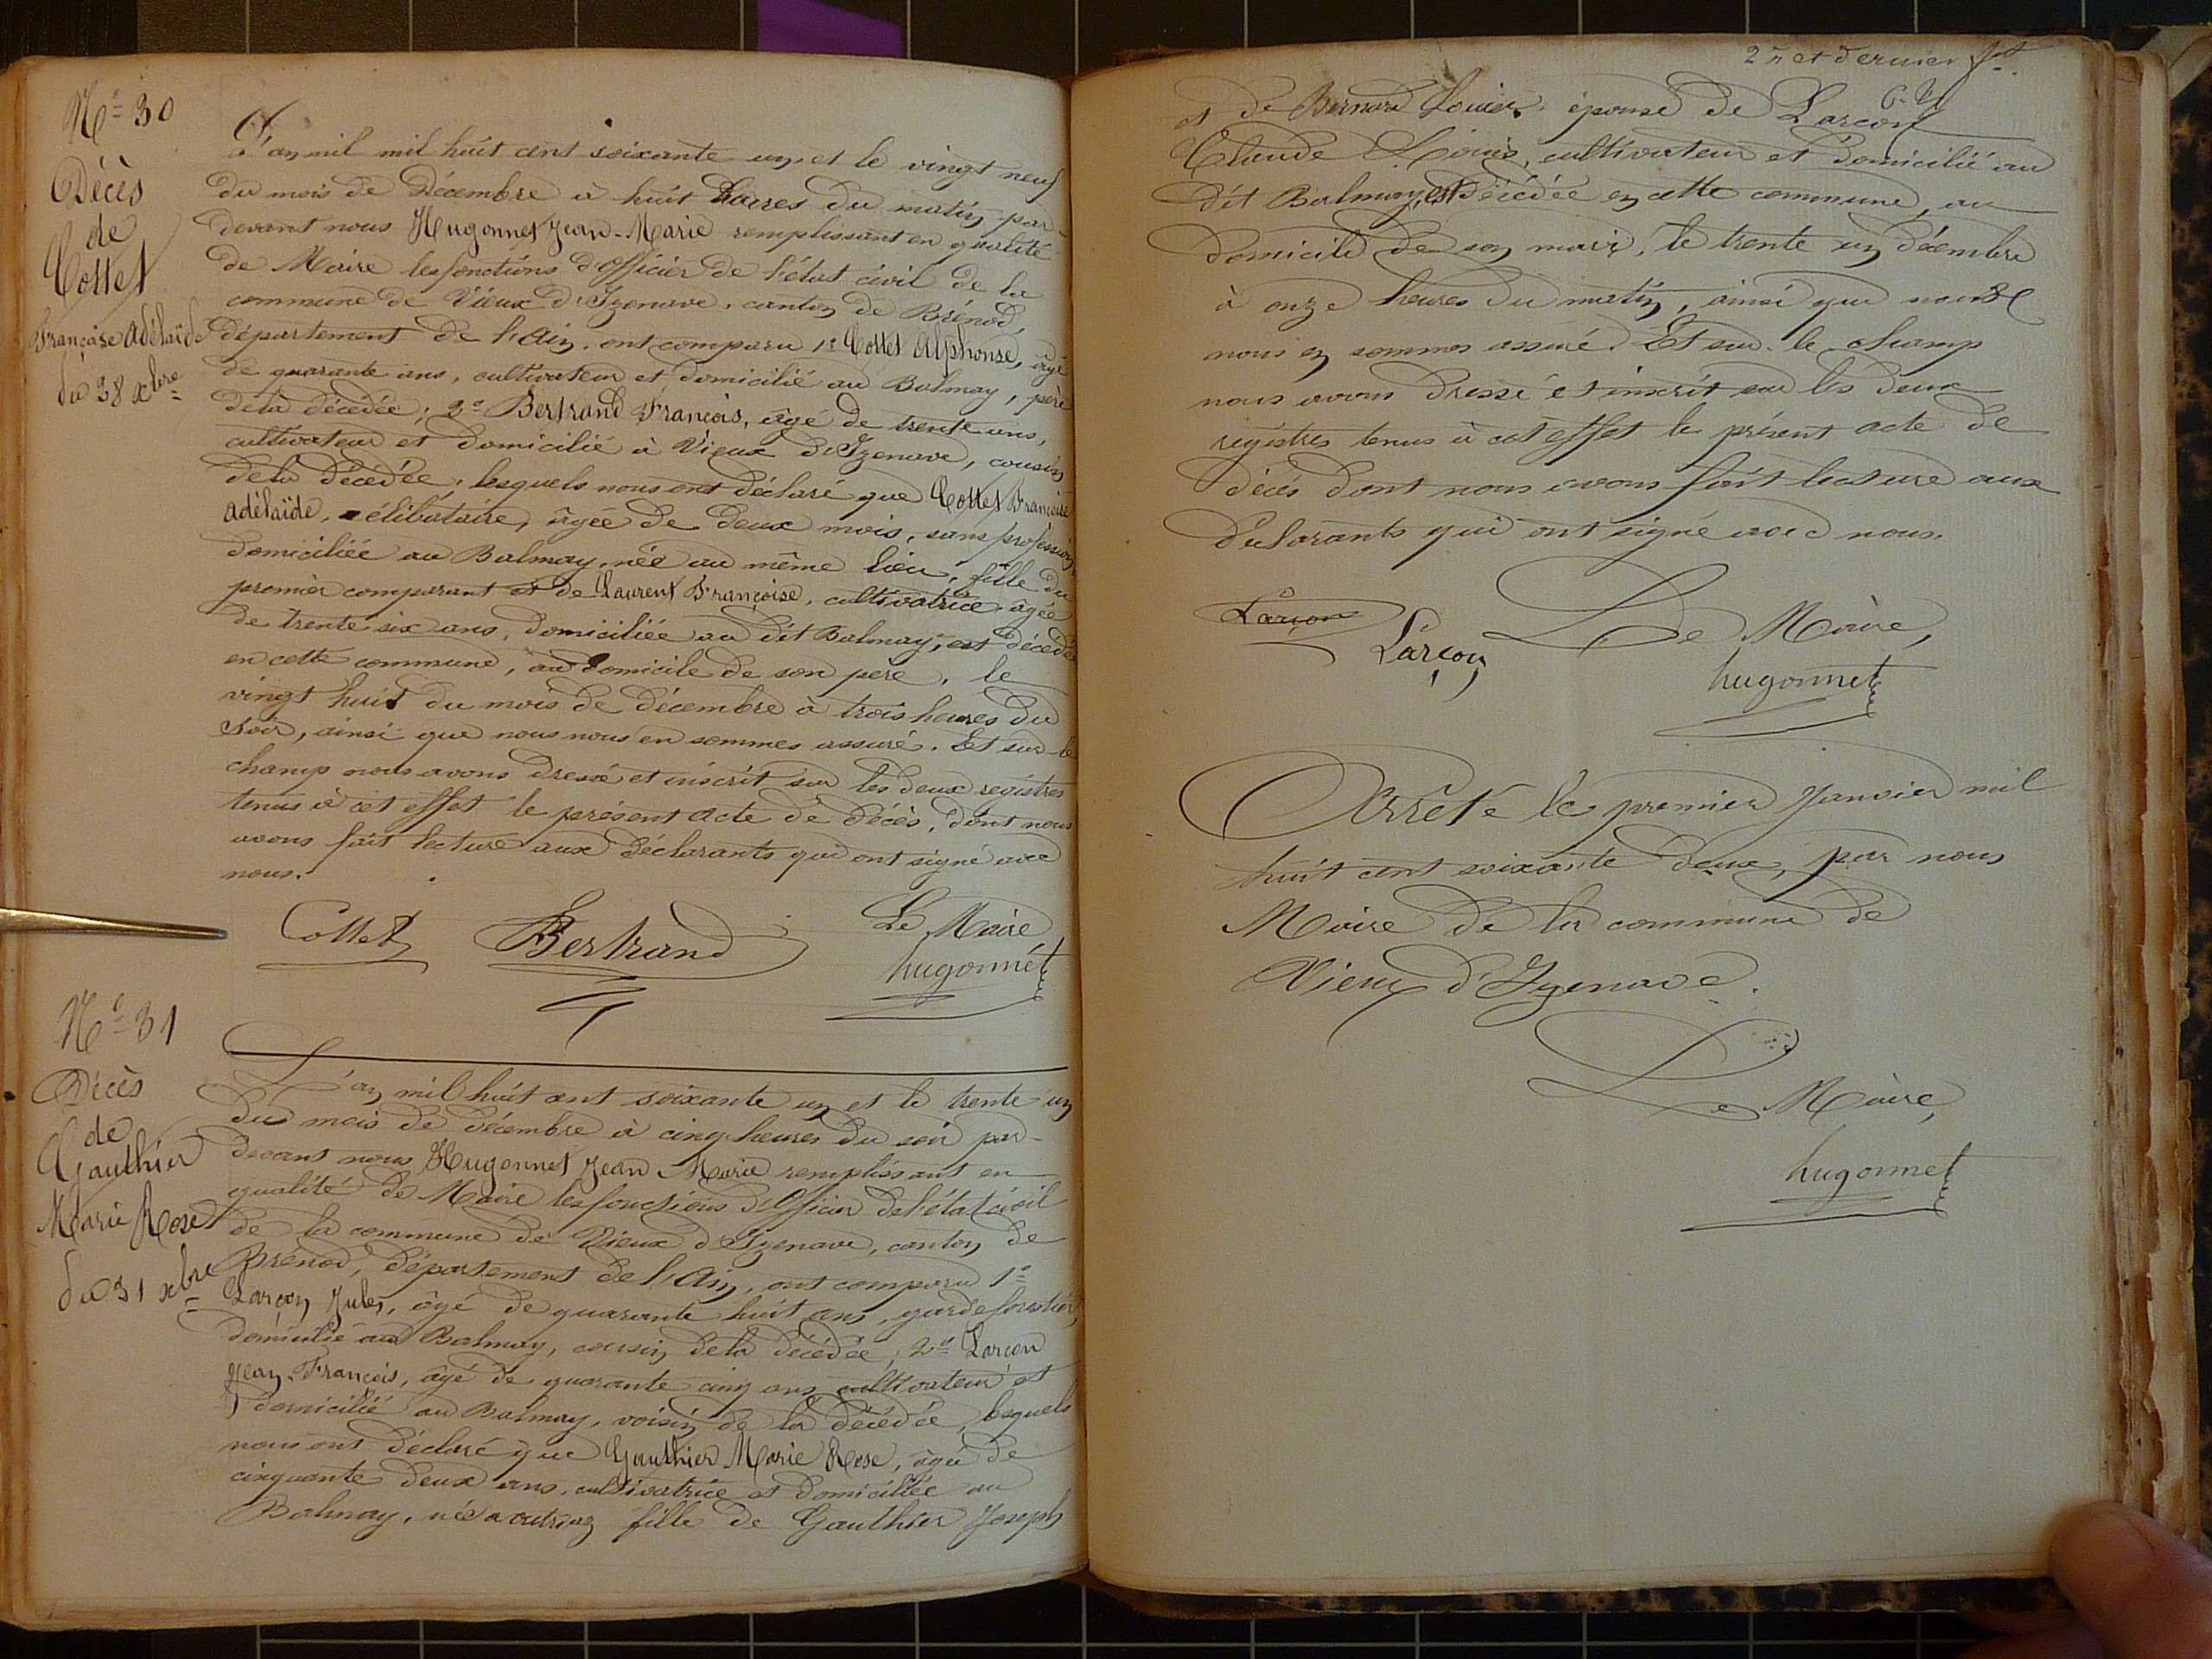 N° 30
Décès
de
Cottet
Françoise Adélaïde
du 28 xbre
L'an mil mil huit cent soixante un et le vingt neuf
du mois de Décembre à huit heures du matin par-
devant nous Hugonnet Jean-Marie remplissant en qualité
de Maire les fonctions d'officier de l'état civil de la
commune de Vieux d'Izenave, canton de Brénod,
département de l'Ain, ont comparu 1° Cottet Alphonse, âgé
de quarante ans, cultivateur et domicilié au Balmay, père
de la décédée; 2° Bertrand François, âgé de trente ans,
cultivateur et domicilié à Vieux d'Izenave, cousin
de la décédée; lesquels nous ont déclaré que Cottet Françoise
Adélaïde, célibataire, âgée de deux mois, sans profession,
domiciliée au Balmay, née au même lieu, fille du
premier comparant et de Laurent Françoise, cultivatrice âgée
de trente six ans, domiciliée au dit Balmay, est décédée
en cette commune, au domicile de son père, le
vingt huit du mois de décembre à trois heures du
soir, ainsi que nous nous en sommes assuré. Et sur-le
champ nous avons dressé et inscrit sur les deux registres
tenus à cet effet le présent acte de décès, dont nous
avons fait lecture aux déclarants qui ont signé avec
nous.
Cottet Bertrand Le Maire
hugonnet
N° 31
Décès
de
Gauthier
Marie Rose
du 31 xbre
L'an mil huit cent soixante un et le trente un
du mois de décembre à cinq heures du soir par-
devant nous Hugonnet Jean Marie remplissant en
qualité de Maire les fonctions d'Officier de l'état civil
de la commune de Vieux d'Izenave, canton de
Brénod, département de l'Ain, ont comparu 1°
Larçon Jules, âgé de quarante huit ans, garde forestier,
domicilié au Balmay, cousin de la décédée, 2° Larçon
Jean-François, âgé de quarante cinq ans, cultivateur et
domicilié au Balmay, voisin de la décédée, lesquels
nous ont déclaré que Gauthier Marie Rose, âgée de
cinquante deux ans, cultivatrice et domiciliée au
Balmay, née à outriaz fille de Gauthier Joseph
2me et dernier
et de Bernard Louise, épouse de Larçon
Claude Louis, cultivateur et domicilié au
dit Balmay, est décédée en cette commune, au
domicile de son mari, le trente un décembre
à onze heures du matin, ainsi que nous
nous en sommes assuré. Et sur-le-champ
nous avons dressé et inscrit sur les deux
registres tenus à cet effet le présent acte de
décès dont nous avons fait lecture aux
déclarants qui ont signé avec nous.
Larçon Larçon Le Maire,
hugonnet
Arrêté le premier Janvier mil
huit cent soixante deux, par nous
Maire de la commune de
Vieux d'Izenave.
Le Maire,
hugonnet